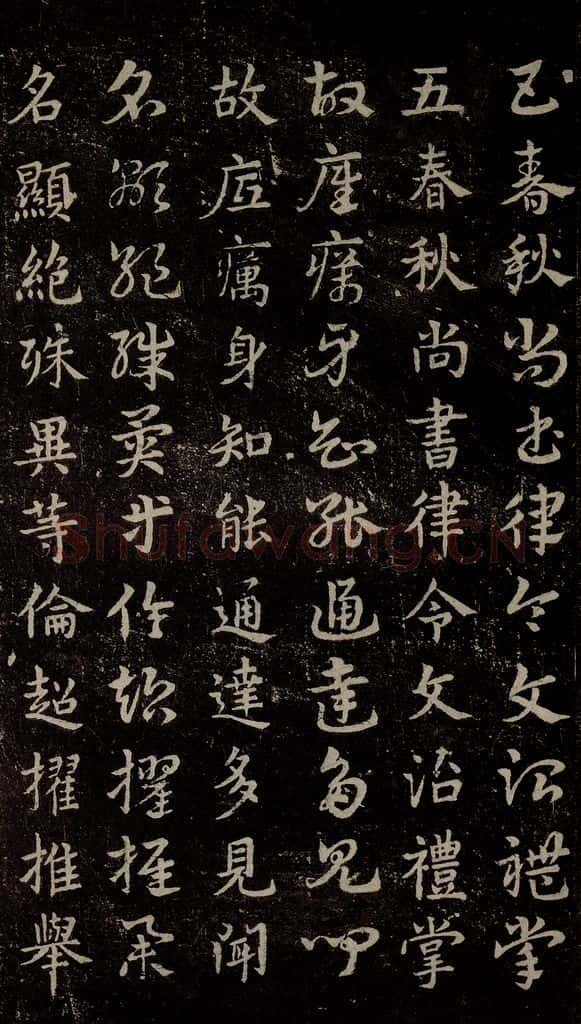 五春秋尚書律令文治禮掌
五春秋尚書律令文治禮掌
故底癘身知能通達多見聞
故底癘身知能通達多見聞
名顯絶殊異等倫超擢推舉
名顯絶殊異等倫超擢推舉
Shufawang.CN